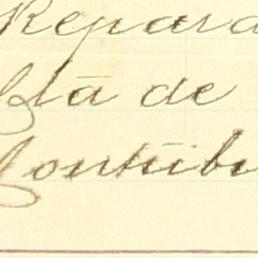 Repara
Gtã de
Contribu